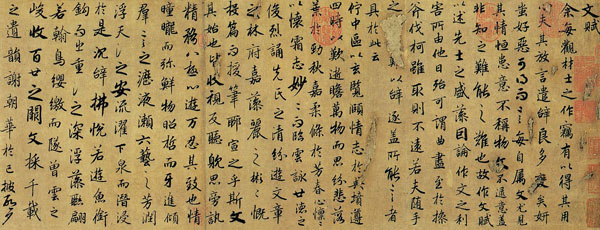 文賦
余每觀材士之作竊有以得其用
心夫其放言遣辭良多變矣妍
蚩好惡可得而言每自屬文尤見
其情恒患意不稱物文不逮意蓋
非知之難能之難也故作文賦
以述先士之盛藻因論作文之利
害所由他日殆可謂曲盡至於操
斧伐柯雖取則不遠若夫隨手
以辭逐蓋所能言者
具於此云
佇中區以玄覽頤情志於典墳遵
四時以歎逝瞻萬物而思紛悲落
葉於勁秋嘉柔條於芳春心懍〻
以懷霜志妙〻而臨雲詠世德之
俊烈誦先民之清紛遊文章
之林府嘉藻麗之彬〻慨
投篇而援筆聊宣之乎斯文
其始也皆收視反聽耽思旁訊
精騖八極心遊萬仞其致也情
曈曨而彌鮮物昭晰而互進傾
群言之瀝液漱六藝之芳潤
浮天淵之安流濯下泉而潛浸
於是沈辭怫悅若遊魚銜
鉤而出重淵之深浮藻聯翩
若翰鳥纓繳而墜曾雲之
峻收百世之闕文採千載
之遺韻謝朝華於已披啟夕